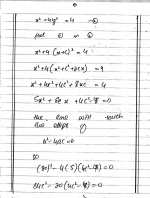 x² + 4y² = 4
put in
x² + 4(x+c)² = 4
x² + 4(x² + c² + 2xc) = 4
x² + 4x² + 4c² + 8xc = 4
5x² + 8cx + 4c² - 4 = 0
the line will touch
the ellipse if
b² - 4ac = 0
so
(8c)² - 4(5)(4c² - 4) = 0
64c² - 20(4c² - 4) = 0